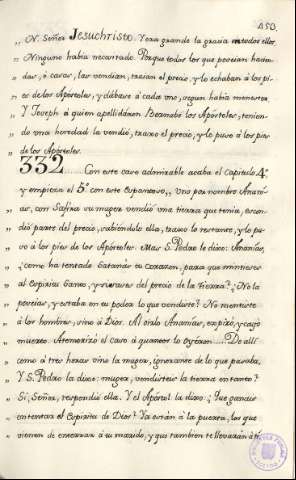 450.
„ N. Señor Jesuchristo. Y era grande la gracia en todos ellos
„ Ninguno habia necesitado. Porque todos los que poseian hacien-
„ das, ó casas, las vendian, traian el precio, y lo echaban á los pi-
„ es de los Apóstoles, y dábase á cada uno, segun habia menester.
„ Y Joseph á quien apellidaron Bernabé los Apóstoles, tenien-
„ do una heredad la vendió, traxo el precio, y lo puso á los pies
„ de los Apóstoles.
332 Con este caso admirable acaba el capitulo 4º
„ y empieza el 5º con este espantoso,, Uno por nombre Ananí-
„ as, con Safira su muger vendió una tierra que tenia, escon-
„ dió parte del precio, sabiéndolo ella, traxo lo restante, y lo pu-
„ so á los pies de los Apóstoles. Mas S. Pedro le dice: Ananías,
„ ¿como ha tentado Satanás tu corazon, para que mintieses
„ al Espíritu Santo, y reservases del precio de la tierra? ¿No la
„ poseias, y estaba en tu poder lo que vendiste? No mentiste
„ á los hombres, sino á Dios. Al oirlo Ananías, expiró, y cayó
„ muerto. Atemorizó el caso á quantos lo oyeron..... De allí
„ como á tres horas vino la muger, ignorante de lo que pasaba,
„ Y S. Pedro la dice: muger, vendisteis la tierra en tanto?
„ Si, Señor, respondió ella. Y el Apóstol la dixo: ¿Qué ganais
„ en tentar el Espíritu de Dios? Ya están á la puerta, los que
„ vienen de enterrar á tu marido, y que tambien te llevarán á ti.